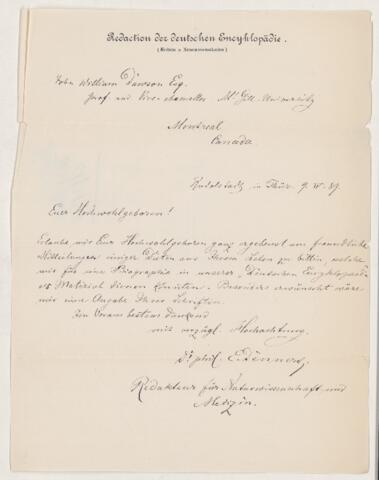 Redaction der deutschen Encyklopädie.
John William Dawson Esq.
Prof. and Vice-chancellor Mc Gill-University
Montreal
Canada
Rudolstadt in Thür. 9. 89.
Euer Hochwohlgeboren!
Erlaube mir Eur Hochwohlgeboren ganz ergebenst um freundliche
Mitteilungen einiger Daten aus Ihrem Leben zu bitten, welche
mir für eine Biographie in unserer Deutschen Encyklopädie
als Material dienen könnten. Besonders erwünscht wäre
mir eine Angabe Ihrer Schriften.
Im Voraus bestens dankend
mit vorzügl. Hochachtung
Dr phil. E. Dennert,
Redakteur für Naturwissenschaft und
Medizin.